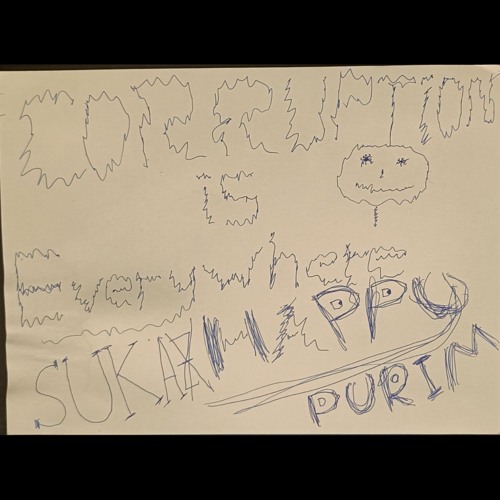 CORRUPTION
is
Everywhere
SUKAZZ HAPPY
PURIM